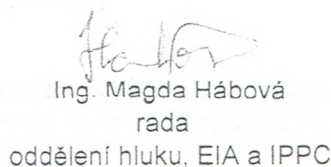 Ing. Magda Hábová
rada
oddělení hluku, EIA a IPPC